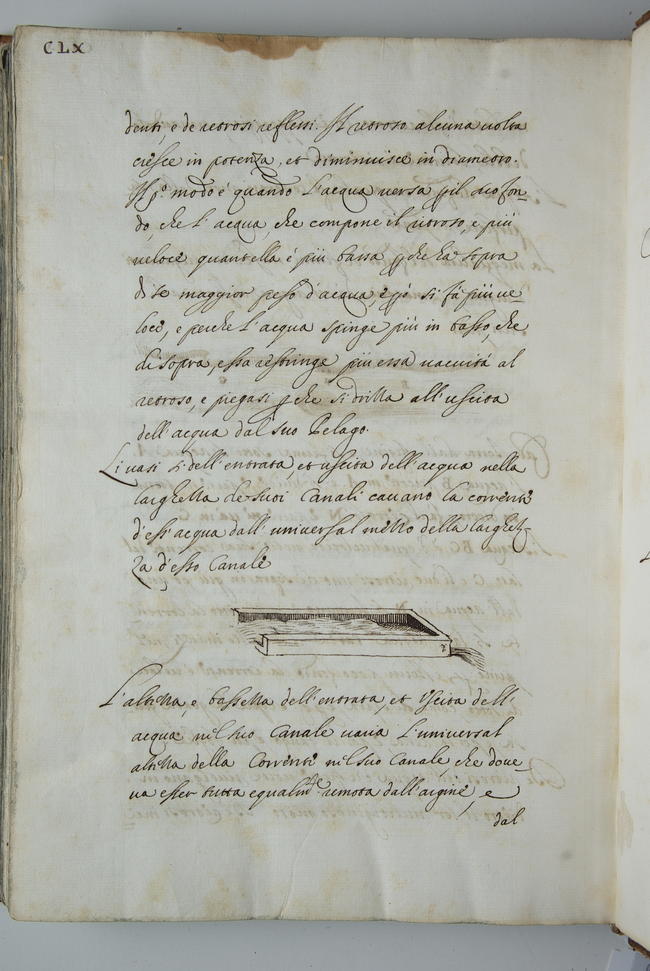 CLX
denti, e de retrosi reflessi. Il retroso alcuna volta
cresce in potenza, et diminuisce in diametro.
Il p.º modo è quando l'acqua versa p il suo fon=
do, che l'acqua, che compone il retroso, e più
veloce quant'ella è più bassa p che ha sopra
di se maggior peso d'acqua, e pò si fà più ve=
loce, e perche l'acqua spinge più in basso, che
di sopra, essa restringe più essa vacuità al
retroso, e piegasi p che si dritta all'uscita
dell'acqua dal suo Pelago.
Li vasi dell'entrata, et uscita dell'acqua nella
larghezza de suoi Canali cavano la corrente
d'ess'acqua dall'universal mezzo della larghez=
za d'esso Canale
L'altezza, e bassezza dell'entrata, et Uscita dell'
acqua nel suo Canale varia l'universal
altezza della Corrente nel suo Canale, che dove
va esser tutta equalmte remota dall'argine, e
dal